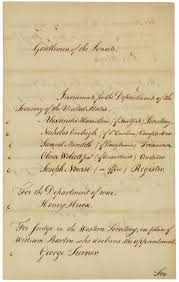 Gentlemen of the Senate.
I nominate for the Department of the
Treasury of the United States.
c Alexander Hamilton (of New York) Secretary
c Nicholas Eveleigh (of So Carolina) Comptroller
c Samuel Meredith (of Pensylvania) Treasurer
c Oliver Wolcott junr (of Connecticut) Auditor
c Joseph Nourse (in office) Register
For the Department of war.
Henry Knox.
For Judge in the Western Territory, in place of
William Barton who declines the appointment
c George Turner.
For